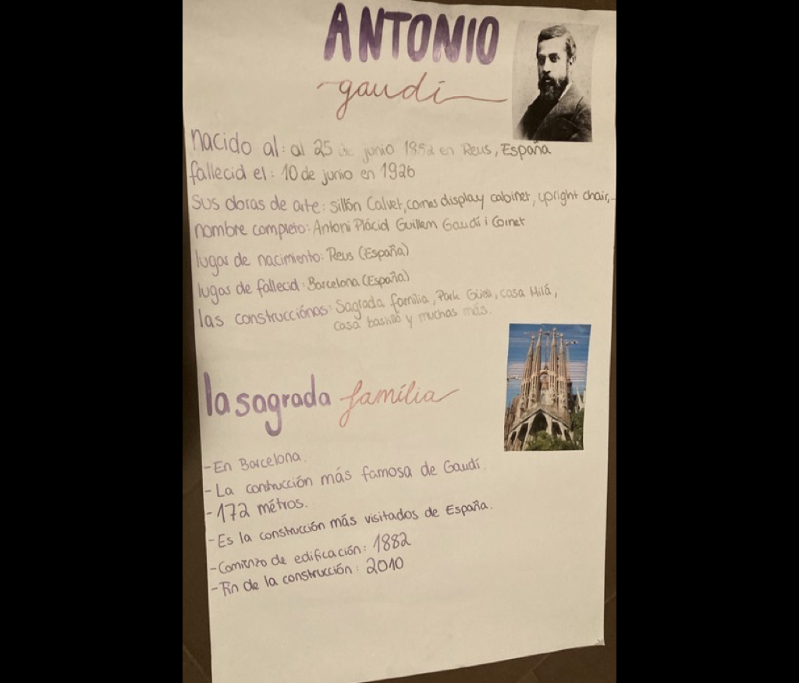 ANTONIO
gaudí
nacido al: al 25 de junio 1852 en Reus, España
fallecid el: 10 de junio en 1926
Sus obras de arte: Sillón Calvet, comes display cabinet, upright chair,...
nombre completo: Antoni Plàcid Guillem Gaudí i Cornet
lugar de nacimiento: Reus (España)
lugas de fallecid: Barcelona (España)
las construcciónas: Sagrada família, Park Güell, casa Milá,
casa basilló y muchas más.
la sagrada família
-En Barcelona.
-La contrucción más famosa de Gaudí.
-172 métros.
-Es la construcción más visitados de España.
-Comienzo de edificación: 1882
-Fin de la construcción: 2010